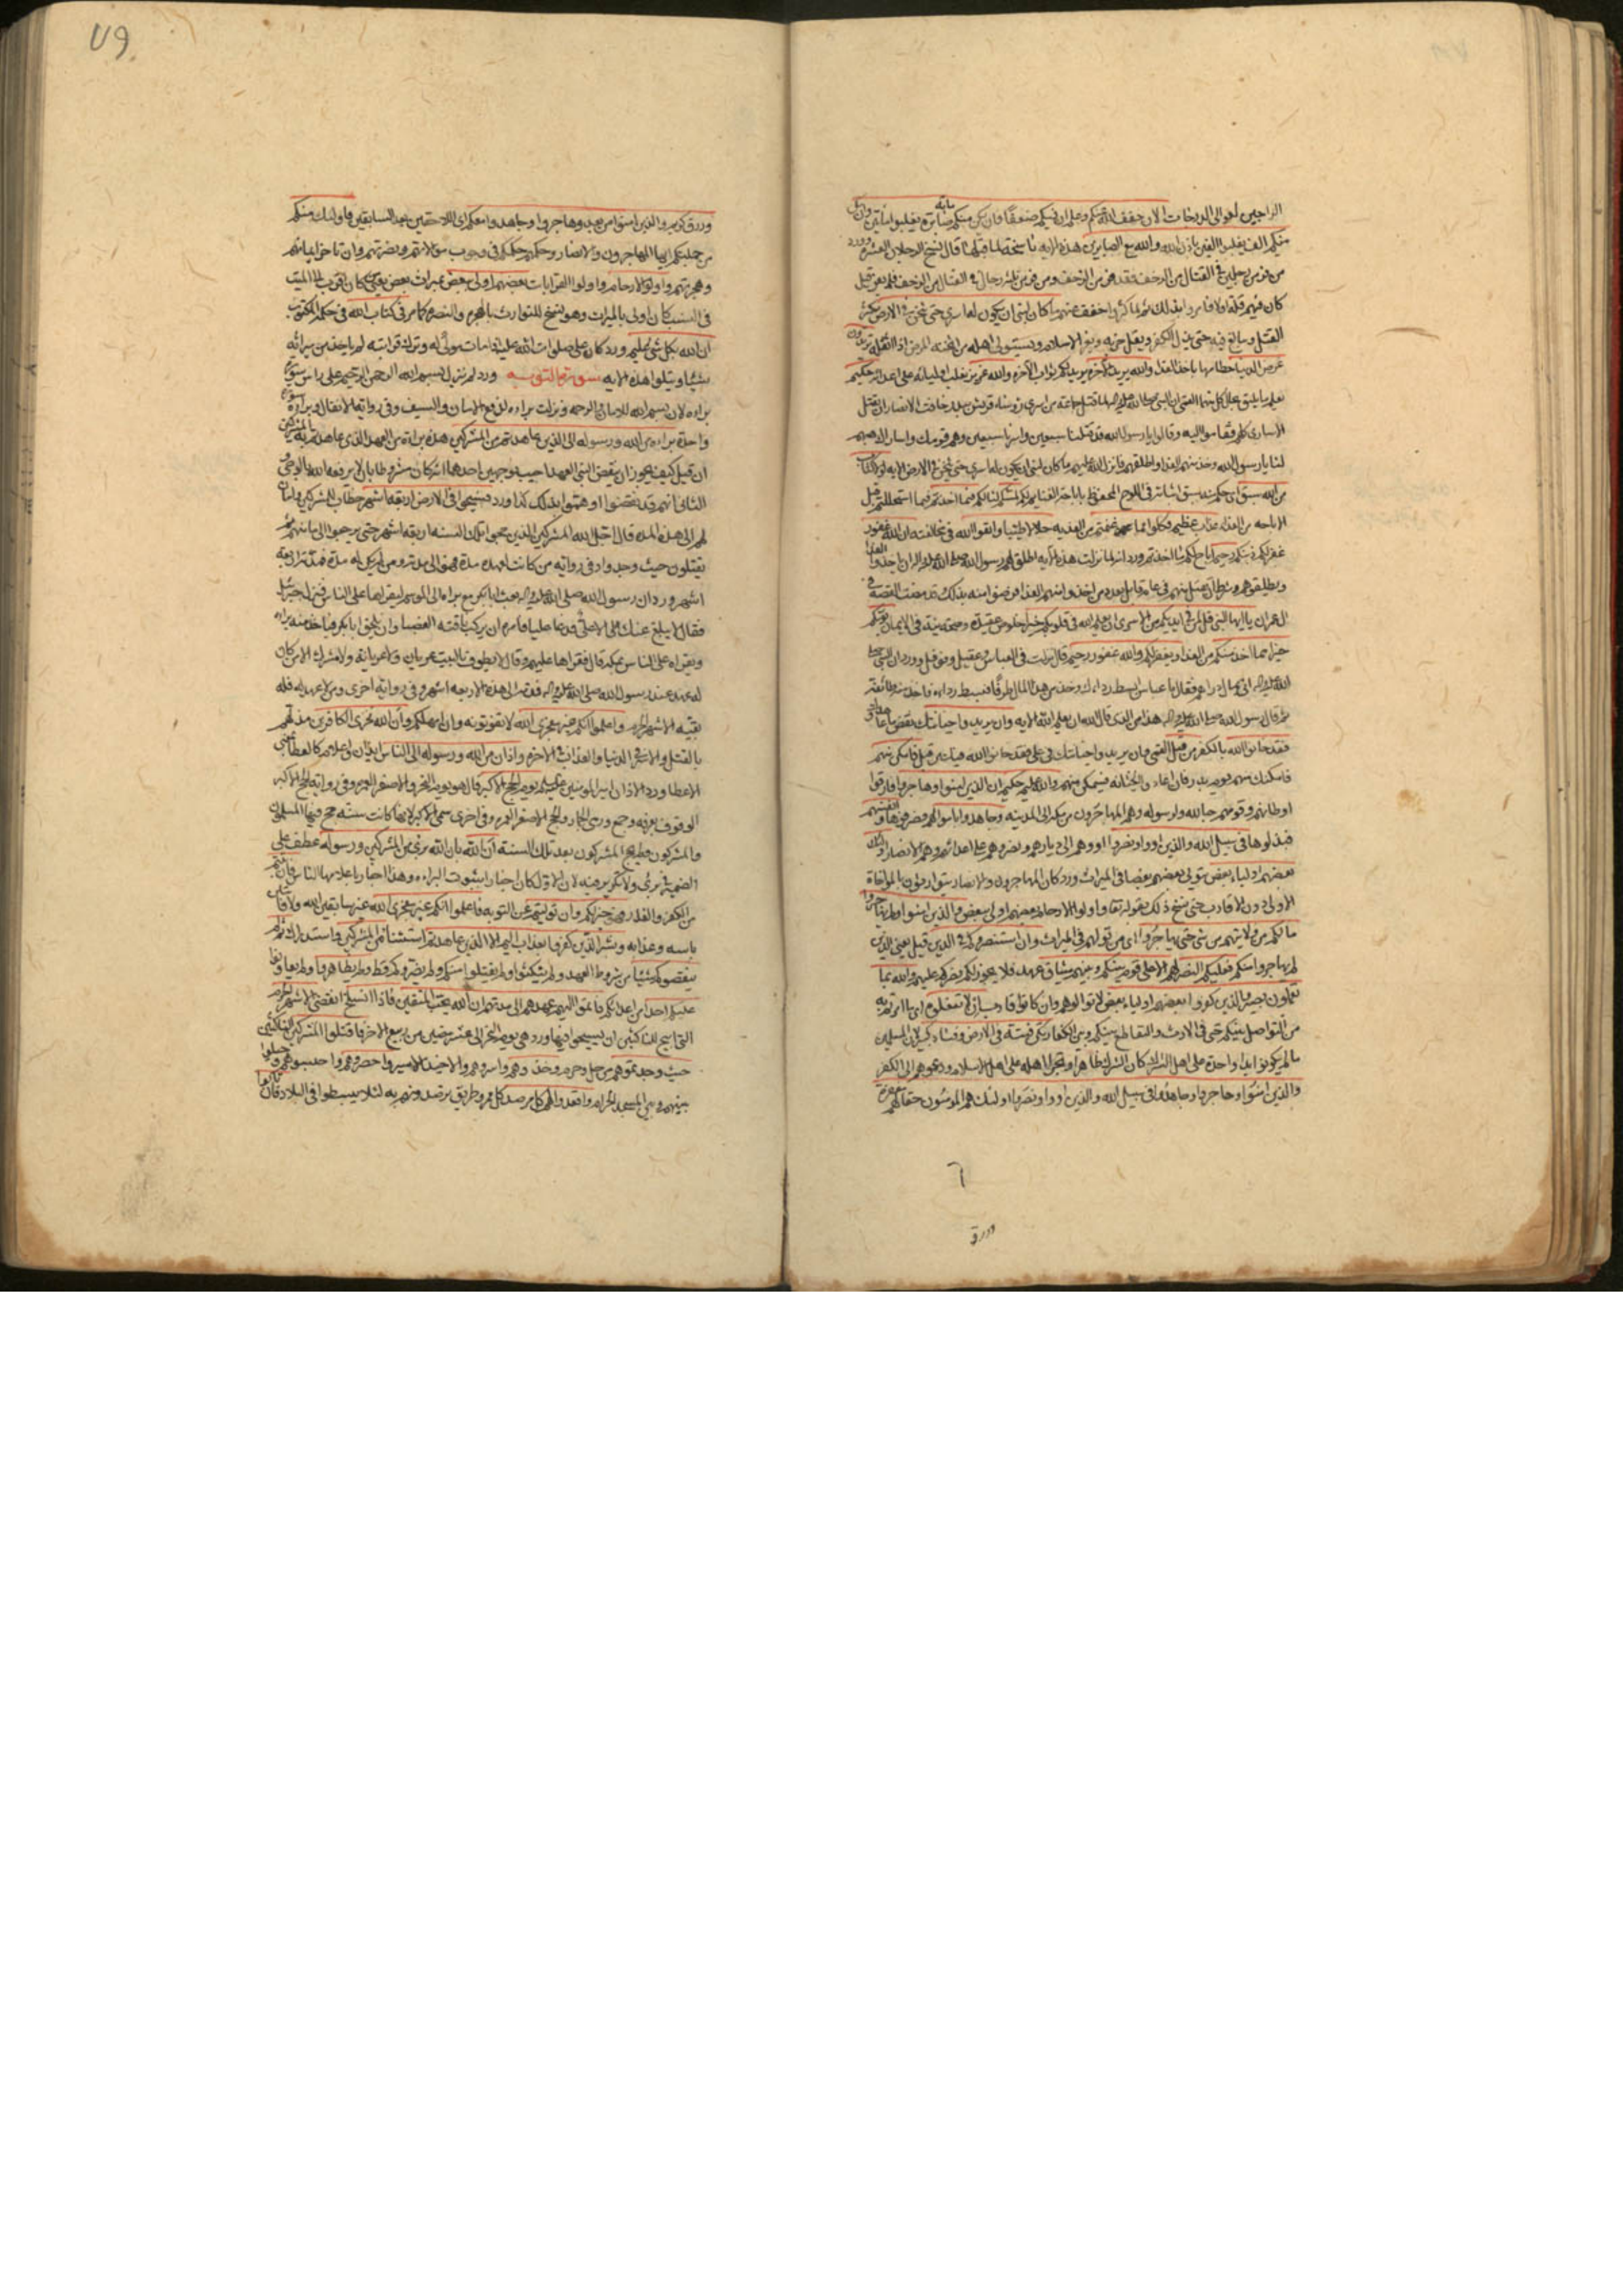 الراجين لعوالى الدرجات الان خفف الله عنكم وعلم ان فيكم ضعفا فان يكن منكم مايه صابرة يغلبوا مأتين وان يكن
منكم الف يغلبوا الفين باذن الله والله مع الصابرين هذه الايه ناسخة لما قبلها قال نسخ الرجلان العشرة وورد
من فر من رجلين فى القتال من الزحف فقد فر من الزحف ومن فر من ثلثه رجال فى القتال من الزحف فلم يفر قيل
كان فيهم قلة اولا فامروا بذلك ثم لما كثروا خفف عنهم ما كان لنبى ان يكون له اسرى حتى يثخن فى الارض يكثر
القتل ويبالغ فيه حتى يذل الكفر ويقل حزبه ويعز الاسلام ويستولى اهله من اثخنه المرض اذا اثقله تريدون
عرض الدنيا حطامها باخذ الفدا والله يريد الاخره يريد لكم ثواب الاخره والله عزيز يغلب اوليائه على اعدائه حكيم
يعلم ما يليق بكل حال
الاسارى كلهم فقاموا اليه وقالوا يا رسول الله قد قتلنا سبعين واسرنا سبعين وهم قومك واساراك
لنا يا رسول الله وخذ منهم الفدا واطلقهم فانزل الله عليهم ما كان لنبى ان يكون له اسرى حتى يثخن فى الارض الايه لولا كتاب
من الله سبق اى حكم منه سبق اثباته فى اللوح المحفوظ باباحة الغنايم لكم لمسكم لنالكم فيما اخذتم فيما استحللتم قبل
الاباحه من الفداء عذاب عظيم فكلوا مما غنمتم من الفديه حلالا طيبا واتقوا الله فى مخالفته ان الله غفور
غفر لكم ذنبكم رحيم اباح لكم ما اخذتم ورد انه لما نزلت هذه الايه اطلق لهم رسول الله صلى الله عليه واله ان ياخذوا الفدا
ال عمران يا ايها النبى قل لمن فى ايديكم من الاسرى ان يعلم الله فى قلوبكم خيرا خلوص عقيدة وصحة نية فى الايمان يؤتكم
خيرا مما اخذ منكم من الفدا ويغفر لكم والله غفور رحيم قال نزلت فى العباس وعقيل ونوفل وورد ان النبى صلى
الله عليه واله اتى بمال دراهم فقال يا عباس ابسط رداءك وخذ من هذا المال طرفا فبسط رداءه فاخذ منه طائفة
ثم قال رسول الله صلى الله عليه واله هذا من الذى قال الله ان يعلم الله الايه وان يريدوا خيانتك بنقض ما عاهدوك
فقد خانوا الله بالكفر من قبل
فامكنك منهم يوم بدر فان اعادوا الخيانه فسيمكن منهم والله عليم حكيم ان الذين امنوا وهاجروا فارقوا
اوطانهم وقومهم حبا لله ولرسوله وهم المهاجرون من مكه الى المدينه وجاهدوا باموالهم فصرفوها وانفسهم
فبذلوها فى سبيل الله والذين اووا ونصروا اووهم الى ديارهم ونصروهم على اعدائهم وهم الانصار اولئك
بعضهم اولياء بعض يتولى بعضهم بعضا فى الميراث ورد كان المهاجرون والانصار يتوارثون بالمواخاة
الاولى دون الاقارب حتى نسخ ذلك بقوله تعالى واولوا الارحام بعضهم اولى ببعض والذين امنوا ولم يهاجروا
ما لكم من ولايتهم من شئ حتى يهاجروا اى من توليهم فى الميراث وان استنصروكم فى الدين
لم يهاجروا منكم فعليكم النصر لهم الا على قوم بينكم وبينهم ميثاق عهد فلا يجوز لكم نصركم عليهم والله بما
تعملون بصير والذين كفروا بعضهم اولياء بعض
من التواصل بينكم حتى فى الارث والتقاطع بينكم وبين الكفار تكن فتنة فى الارض وفساد كبير لان المسلمين
ما لم يكونوا يدا واحدة على اهل الشرك كان الشرك ظاهرا وتجرا اهله على اهل الاسلام ودعوهم الى الكفر
والذين امنوا وهاجروا وجاهدوا فى سبيل الله والذين اووا ونصروا اولئك هم المومنون حقا لهم مغفرة
ورزق
٧٩
ورزق كريم والذين امنوا من بعد وهاجروا وجاهدوا معكم اى اللاحقين بعد السابقين فاولئك منكم
من جملتكم ايها المهاجرون والانصار وحكمهم حكمكم فى وجوب موالاتهم ونصرتهم وان تاخر ايمانهم
وهجرتهم واولوا الارحام واولوا القرابات بعضهم اولى ببعض
فى النسب كان اولى بالميراث وهو نسخ للتوارث بالهجرة والنصره كما مر فى كتاب الله فى حكمه المكتوب
ان الله بكل شئ عليم ورد كان على صلوات الله عليه اذا مات مولى له وترك قرابته لم ياخذ من ميراثه
شيئا ويتلوا هذه الايه سورة التوبه ورد لم تنزل بسم الله الرحمن الرحيم على راس سورة
براءه لان بسم الله للامان والرحمه ونزلت براءه لدفع الامان والسيف وفى رواية الانفال وبراءة سورة
واحدة براءه من الله ورسوله الى الذين عاهدتم من المشركين هذه براءة من العهد الذى عاهدتم به المشركين
ان قيل كيف يجوز ان ينقض النبى العهد اجيب بوجهين احدهما انه كان مشروطا بان لا يرفعه الله بالوحى و
الثانى انهم قد نقضوا او هموا بذلك كذا ورد فسيحوا فى الارض اربعة اشهر خطاب للمشركين وامان
لهم الى هذه المده قال اجل الله المشركين الذين حجوا تلك السنه اربعة اشهر حتى يرجعوا الى مامنهم ثم
يقتلون حيث وجدوا وفى رواية من كانت له مدة فهو الى مدته ومن لم يكن له مدة فمدته اربعة
اشهر ورد ان رسول الله صلى الله عليه واله بعث ابا بكر مع براءه الى الموسم ليقراها على الناس فنزل جبرئيل
فقال لا يبلغ عنك الا على فدعا عليا فامره ان يركب ناقته العضبا وان يلحق ابا بكر فياخذ منه براءه
ويقراه على الناس بمكه قال فقراها عليهم وقال لا يطوف بالبيت عريان ولا عريانة ولا مشرك الا من كان
له عهد عند رسول الله صلى الله عليه واله فمدته الى هذه الاربعه اشهر وفى رواية اخرى ومن لا عهد له فله
بقية الاشهر الحرم واعلموا انكم غير معجزى الله لا تفوتونه وان امهلكم وان الله مخزى الكافرين مذلهم
بالقتل والاسر فى الدنيا والعذاب فى الاخره واذان من الله ورسوله الى الناس ايذان واعلام كالعطا بمعنى
الاعطا ورد الاذان امير المومنين عليه السلام يوم الحج الاكبر قال هو يوم النحر والاصغر العمره وفى رواية الحج الاكبر
الوقوف بعرفه وجمع ورمى الجمار والحج الاصغر العمره وفى اخرى سمى الاكبر لانها كانت سنة حج فيها المسلمون
والمشركون ولم يحج المشركون بعد تلك السنة ان الله بان الله برئ من المشركين ورسوله عطف على
الضمير فى برئ ولا تكرير فيه لان الاول كان اخبارا بثبوت البراءه وهذا اخبار باعلامها الناس فان تبتم
من الكفر والغدر فهو خير لكم وان توليتم عن التوبه فاعلموا انكم غير معجزى الله غير سابقين الله ولا فائتين
باسه وعذابه وبشر الذين كفروا بعذاب اليم الا الذين عاهدتم استثناء من المشركين واستدراك ثم لم
ينقصوكم شيئا من شروط العهد ولم ينكثوا ولم يقتلوا منكم ولم يضروكم قط ولم يظاهروا ولم يعاونوا
عليكم احدا من اعدائكم فاتموا اليهم عهدهم الى مدتهم ان الله يحب المتقين فاذا انسلخ انقضى الاشهر الحرم
التى ابيح للناكثين ان يسيحوا فيها ورد هى يوم النحر الى عشر مضين من ربيع الاخر فاقتلوا المشركين الناكثين
حيث وجدتموهم من حل وحرم وخذوهم واسروهم والاخيذ الاسير واحصروهم واحبسوهم وحيلوا
بينهم وبين المسجد الحرام واقعدوا لهم كل مرصد كل ممر وطريق ترصدونهم به لئلا يبسطوا فى البلاد فان تابوا